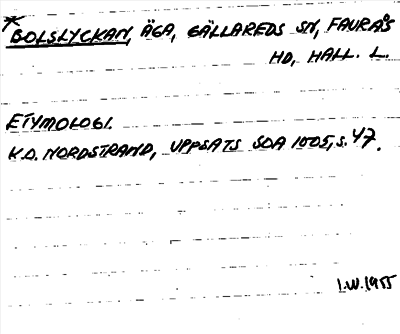 *BOLSLYCKAN, ÄGA, GÄLLAREDS SN, FAURÅS
HD, HALL. L.
ETYMOLOGI.
K.D. NORDSTRAND, UPPSATS SOA 1005, S. 47.
I.W. 1955